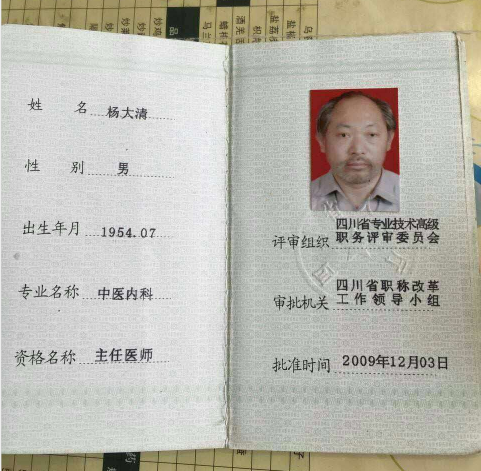 姓 名 杨大清
性 别 男
出生年月 1954.07
专业名称 中医内科
资格名称 主任医师
四川省专业技术高级
评审组织 职务评审委员会
四川省职称改革
审批机关 工作领导小组
批准时间 2009年12月03日